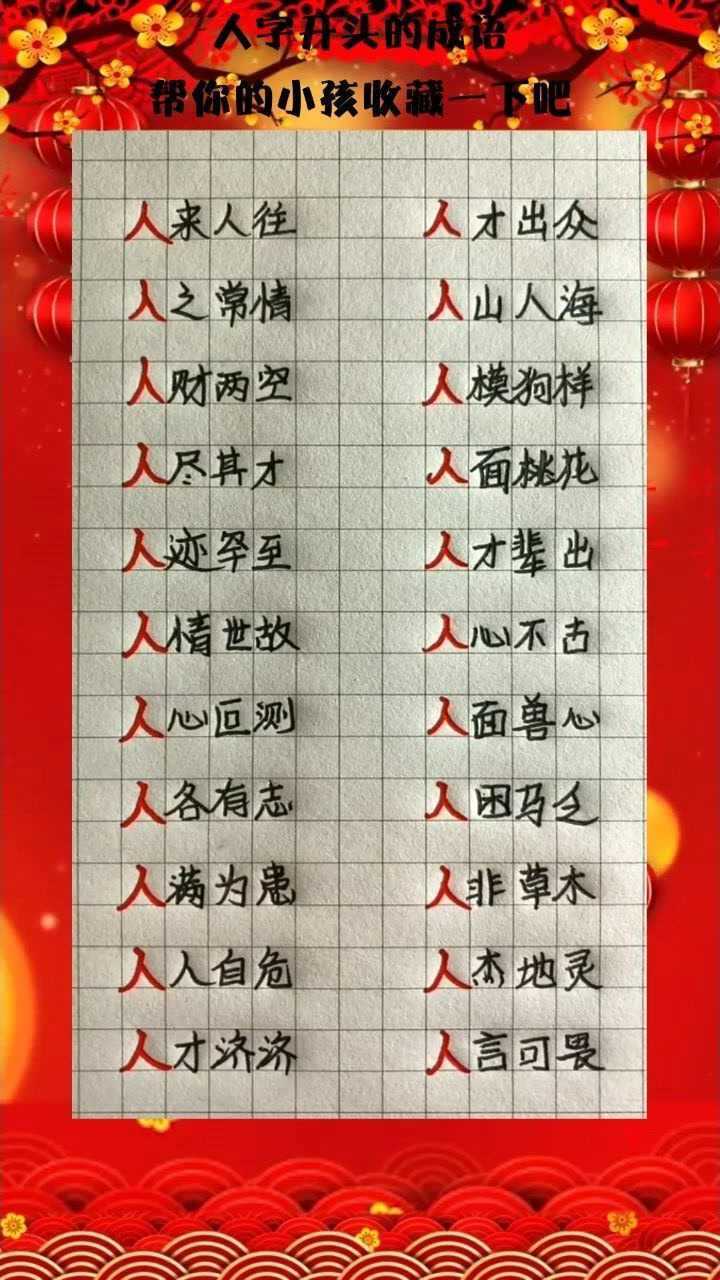 人字开头的成语
帮你的小孩收藏一下吧
人来人往 人才出众
人之常情 人山人海
人财两空 人模狗样
人尽其才 人面桃花
人迹罕至 人才辈出
人情世故 人心不古
人心叵测 人面兽心
人各有志 人困马乏
人满为患 人非草木
人人自危 人杰地灵
人才济济 人言可畏